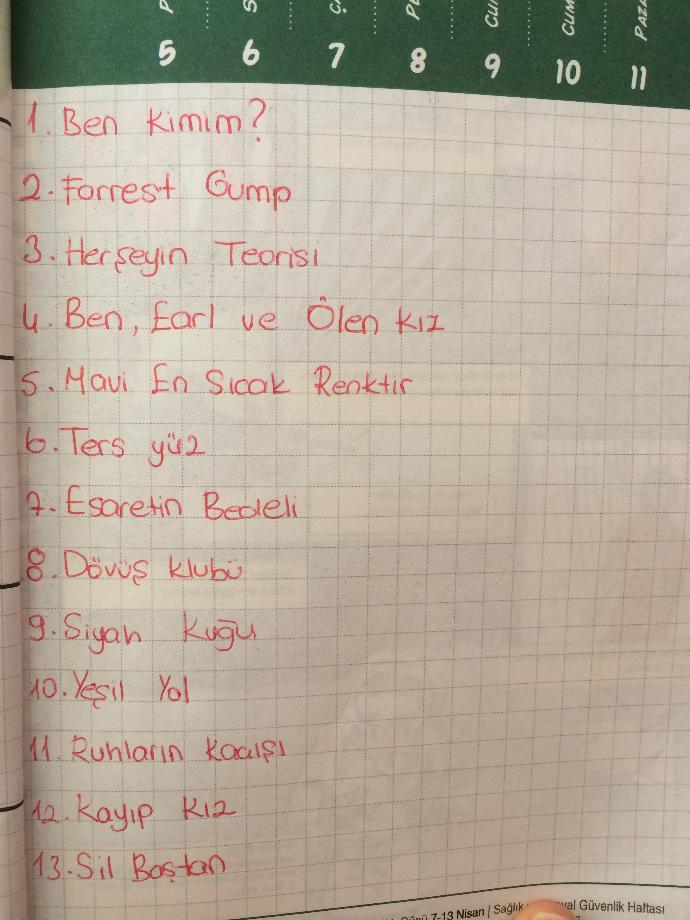 5 6 7 8 9 10 11
1. Ben Kimim?
2. Forrest Gump
3. Herşeyin Teorisi
4. Ben, Earl ve Ölen Kız
5. Mavi En Sıcak Renktir
6. Ters yüz
7. Esaretin Bedeli
8. Dövüş klubü
9. Siyah Kuğu
10. Yeşil Yol
11. Ruhların Kaçışı
12. Kayıp Kız
13. Sil Baştan
Günü 7-13 Nisan | Sağlık Güvenlik Haftası